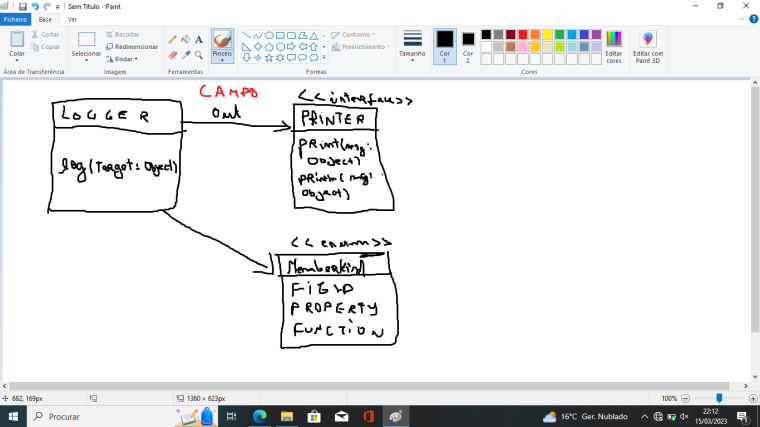 Sem Título - Paint
Ficheiro Base Ver
Colar
Cortar
Copiar
Área de Transferência
Selecionar
Recortar
Redimensionar
Rodar
Imagem
Ferramentas
Pincéis
Contorno
Preenchimento
Formas
Tamanho
Cor 1
Cor 2
Cores
Editar cores
Editar com Paint 3D
CAMPO
<<interface>>
LOGGER
out
PRINTER
log(Target: Object)
PRint(msg: Object)
PRintln(msg: Object)
<<enum>>
MemberKind
FIELD
PROPERTY
FUNCTION
682, 169px
1360 × 623px
100%
Procurar
16°C Ger. Nublado
22:12
15/03/2023